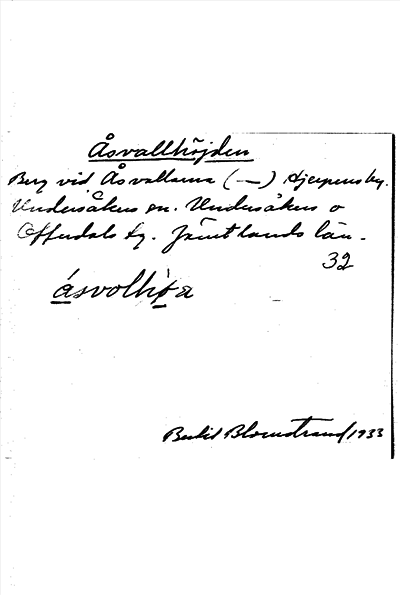 Åsvallhöjden
Berg vid Åsvallarna (—) Hjerpens by.
Undersåkers sn. Undersåkers o
Offerdals tg. Jämtlands län.
32
ásvolhö́a
Berkit Blomstrand 1933